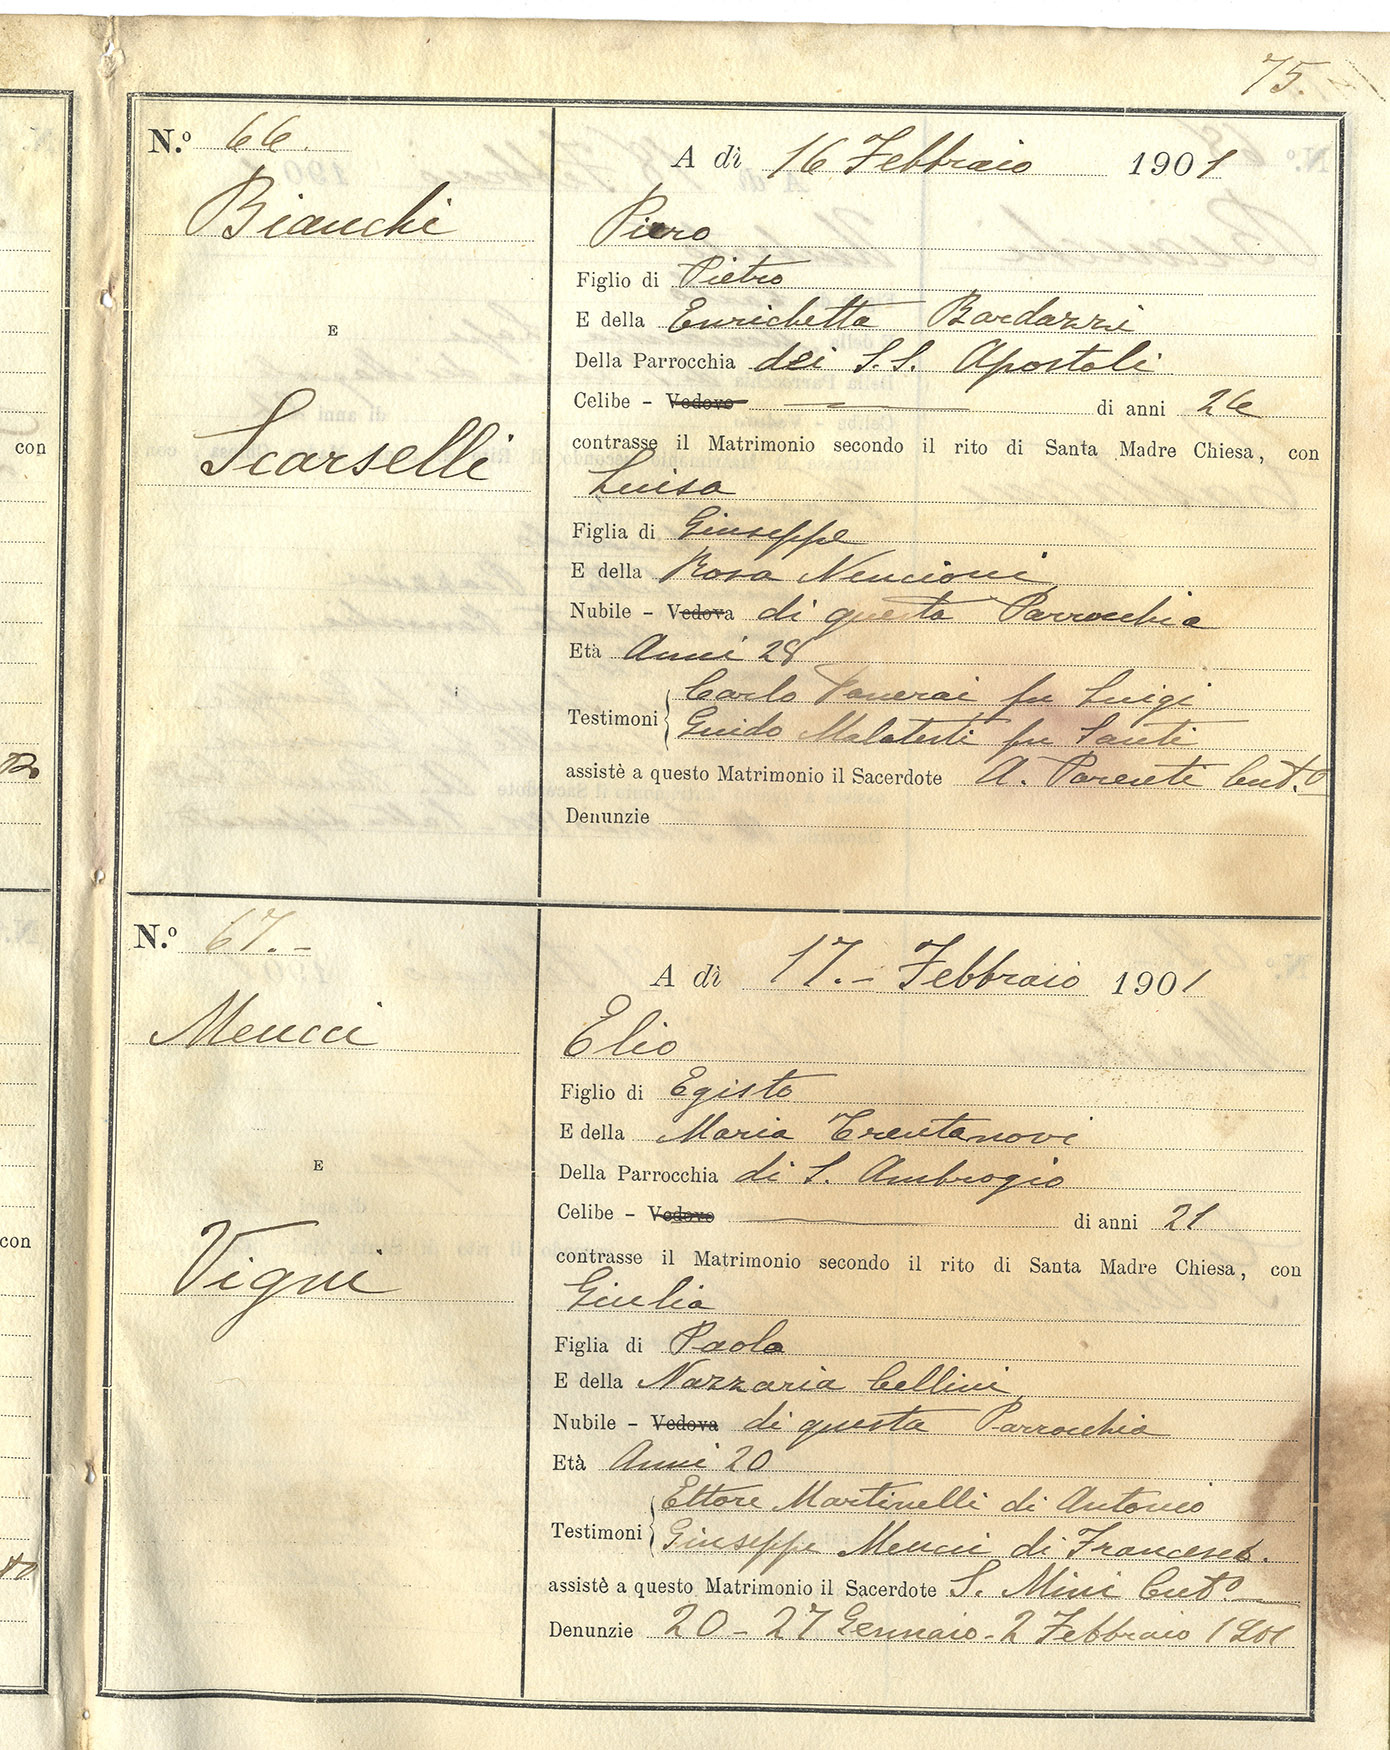 75.
N.º 66.
Bianchi
E
Scarselli
A dì 16 Febbraio 1901
Piero
Figlio di Pietro
E della Enrichetta Bardazzi
Della Parrocchia dei S.S. Apostoli
Celibe - Vedovo di anni 26
contrasse il Matrimonio secondo il rito di Santa Madre Chiesa, con
Luisa
Figlia di Giuseppe
E della Rosa Nencioni
Nubile - Vedova di questa Parrocchia
Età Anni 28
Testimoni Carlo Panerai fu Luigi
Guido Malatesti fu Santi
assistè a questo Matrimonio il Sacerdote A. Parenti Cut.º
Denunzie
N.º 67.-
Meucci
E
Vigni
A dì 17.- Febbraio 1901
Elio
Figlio di Egisto
E della Maria Trentanovi
Della Parrocchia di S. Ambrogio
Celibe - Vedovo di anni 21
contrasse il Matrimonio secondo il rito di Santa Madre Chiesa, con
Giulia
Figlia di Paolo
E della Nazzaria Cellini
Nubile - Vedova di questa Parrocchia
Età Anni 20
Testimoni Ettore Martinelli di Antonio
Giuseppe Meucci di Francesco.
assistè a questo Matrimonio il Sacerdote S. Mini Cut.º
Denunzie 20 - 27 Gennaio - 2 Febbraio 1901
con
con